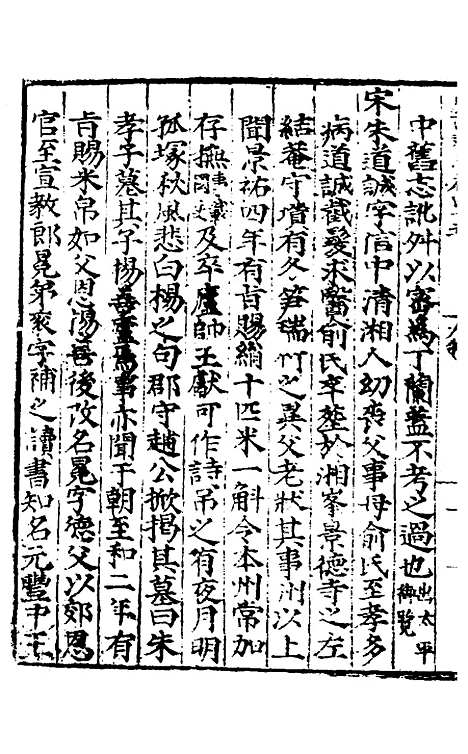 中舊志訛舛以審為丁蘭蓋不考之過也出太平御覽
宋朱道誠字信中清湘人幼喪父事母俞氏至孝多
病道誠截髮求醫俞氏卒塟於湘峯景德寺之左
結菴守墳有冬笋瑞竹之異父老狀其事州以上
聞景祐四年有旨賜絹十匹米一斛令本州常加
存撫及卒廬帥王獻可作詩吊之有夜月明
孤塚秋風悲白楊之句郡守趙公掀揭其墓曰朱
孝子墓其子楊善亦聞于朝至和二年有
旨賜米帛如父恩湯善後改名冕字德父以郊恩
官至宣教郎冕弟袞字補之讀書知名元豐中王